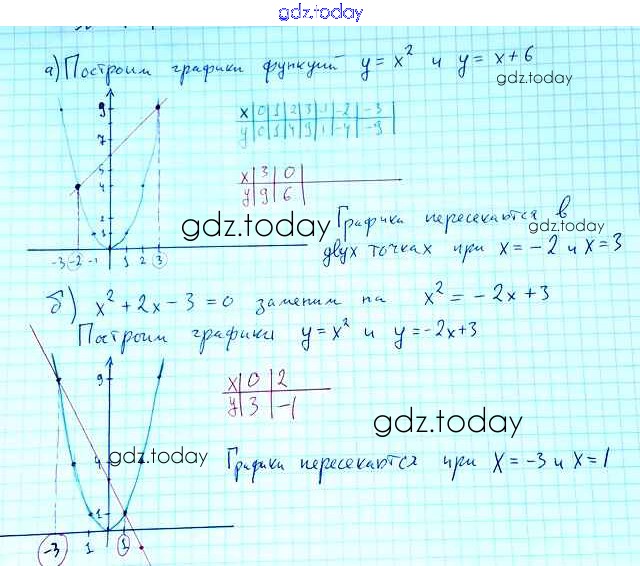 gdz.today
а) Построим графики функций y = x² и y = x+6
gdz.today
x 0 1 2 3 1 -2 -3
y 0 1 4 9 1 -4 -9
x 3 0
y 9 6
9
7
5
4
2
1
-3 -2 -1 1 2 3
gdz.today
gdz.today
Графики пересекаются в
двух точках при x = -2 и x = 3
б) x² + 2x - 3 = 0 заменим на x² = -2x + 3
Построим графики y = x² и y = -2x+3
x 0 2
y 3 -1
9
4
1
-3 1 1
gdz.today
gdz.today
Графики пересекаются при x = -3 и x = 1